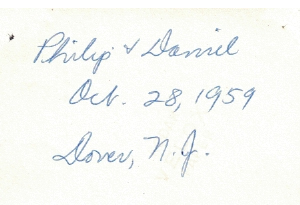 Philip & Daniel
Oct. 28, 1959
Dover, N.J.